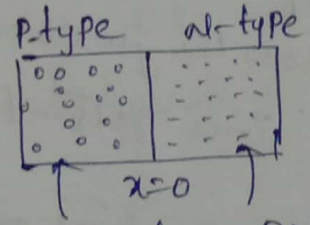 P-type n-type
x=0